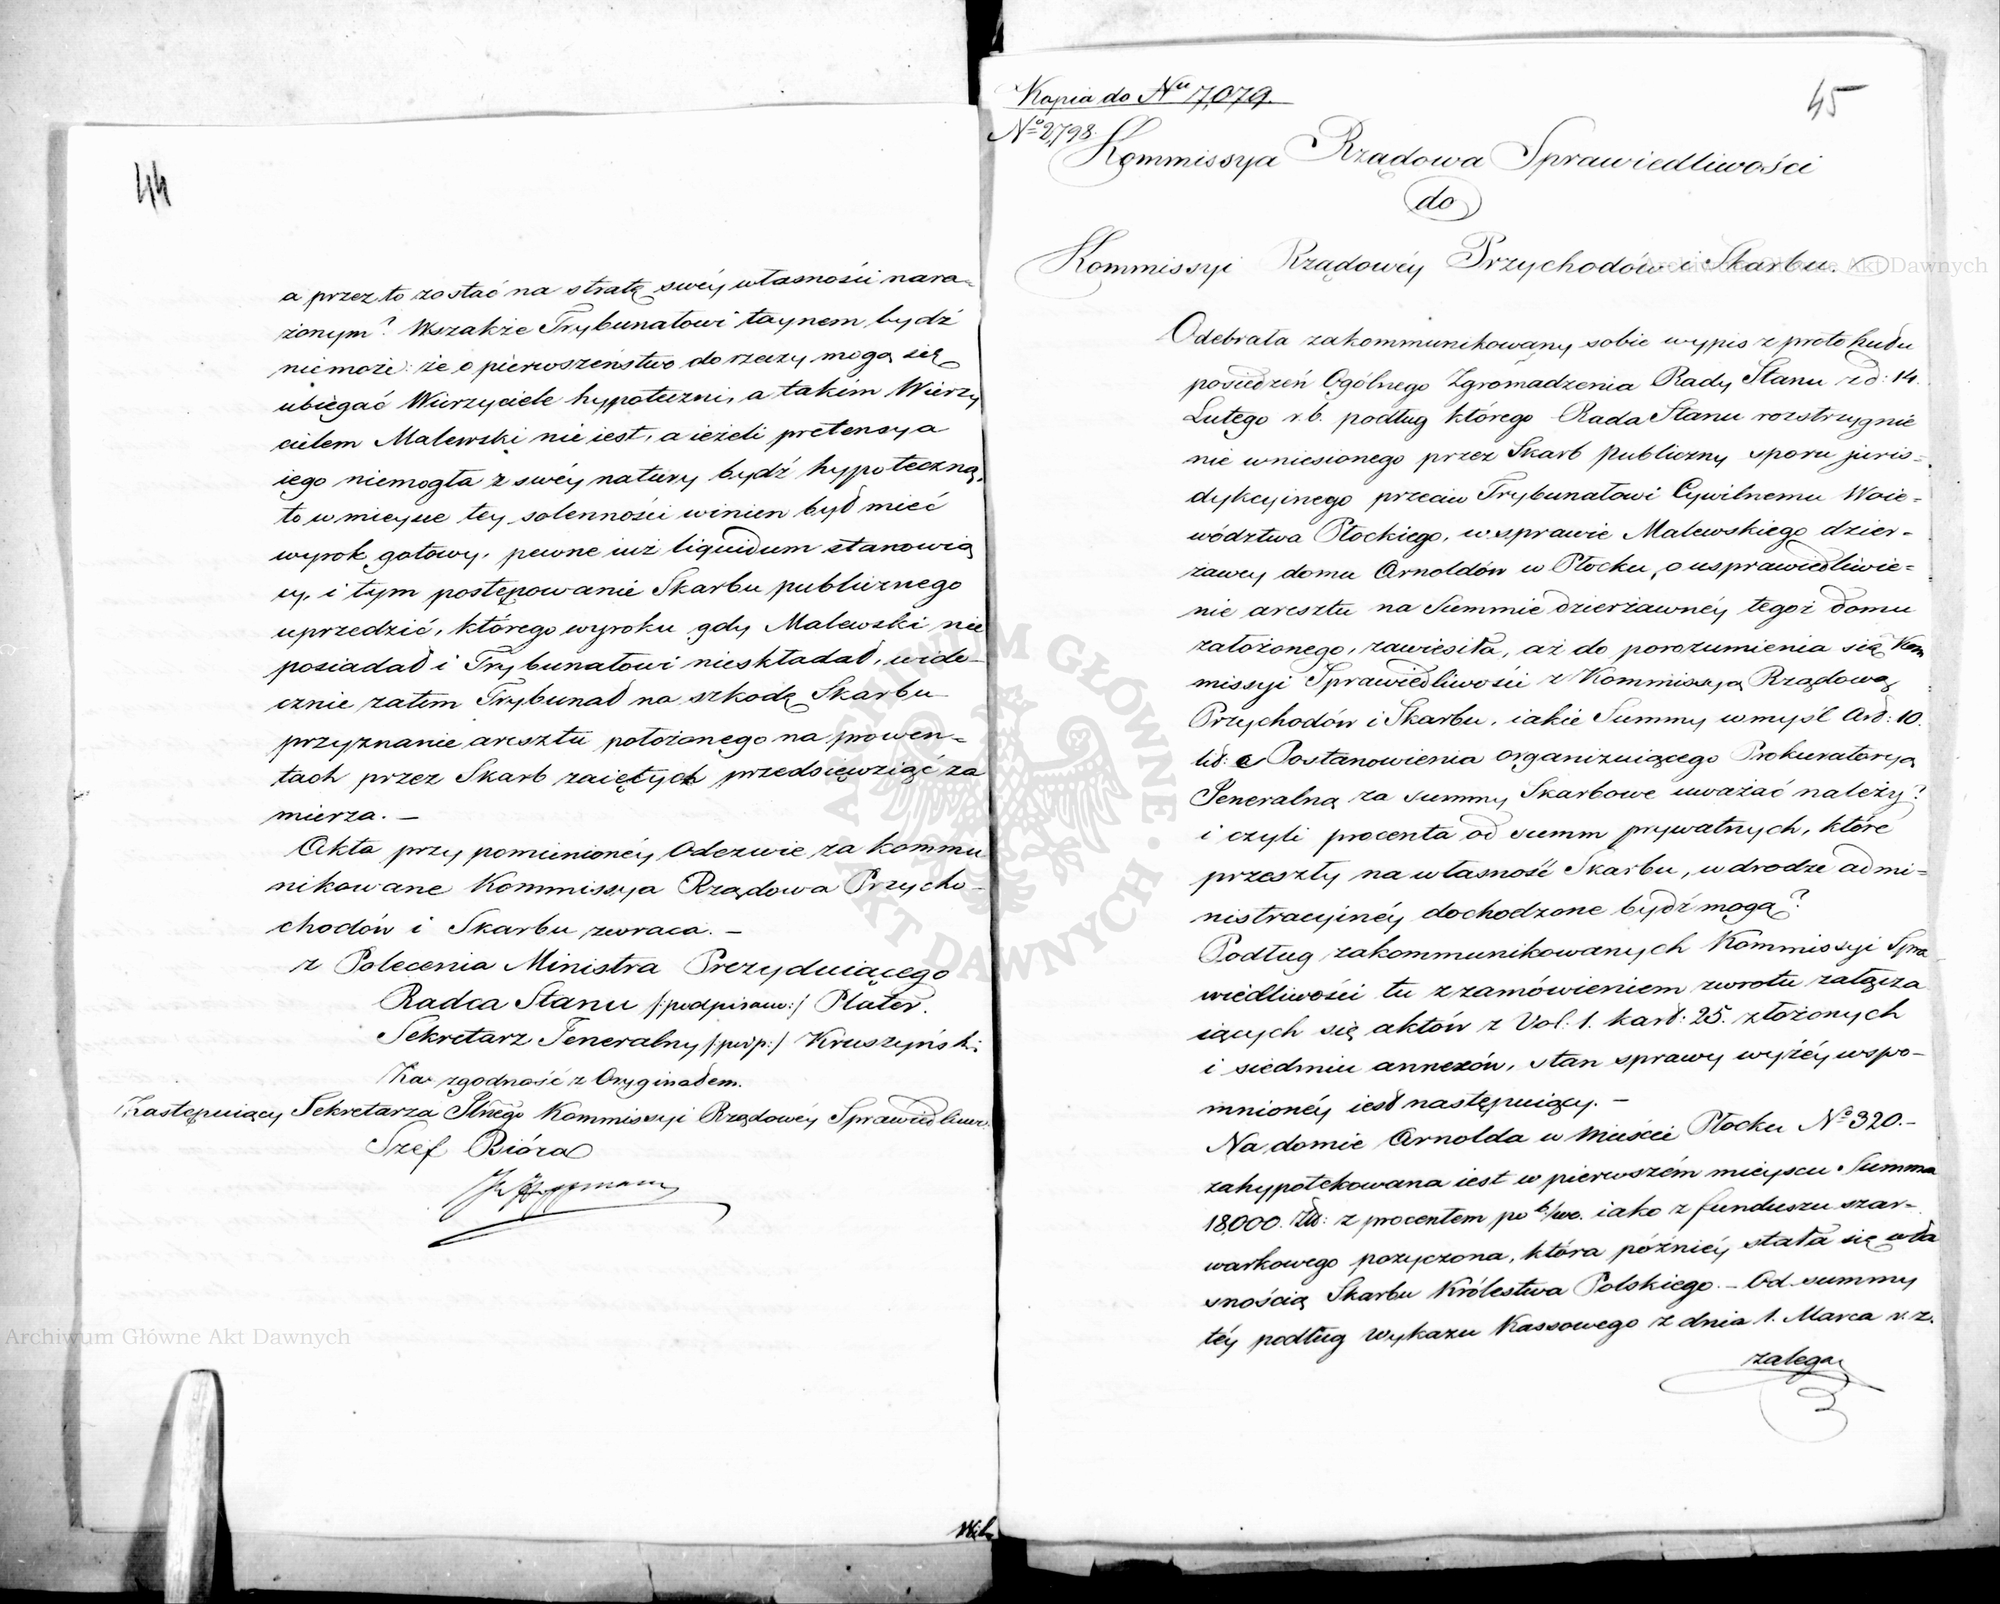 44
a przez to zostać na stratę swéy własności nara-
żonym? Wszakże Trybunałowi taynem bydź
niemoże: że o pierwszeństwo do rzeczy mogą się
ubiegać Wierzyciele hypoteczni, a takim Wierzy
cielem Malewski nie iest, a ieżeli pretensya
iego niemogła z swéy natury bydź hypoteczną,
to w mieysce tey solenności winien był mieć
wyrok gotowy, pewne iuż liquidum stanowią
cy, i tym postępowanie Skarbu publicznego
uprzedzić, którego wyroku gdy Malewski nie
posiadał i Trybunałowi nieskładał, wido-
cznie zatem Trybunał na szkodę Skarbu
przyznanie aresztu położonego na prowen-
tach przez Skarb zaiętych przedsięwziąć za
mierza. —
Akta przy pomienionéy Odezwie za kommu
nikowane Kommissya Rządowa Przycho-
chodów i Skarbu zwraca. —
z Polecenia Ministra Prezyduiącego
Radca Stanu /:podpisano:/ Plater.
Sekretarz Jeneralny /:podp:/ Kruszyński
Za zgodność z Oryginałem.
Zastępuiący Sekretarza Jlnego Kommissyi Rządowéy Sprawiedliwo:
Szef Bióra
Hoffmann
Kopia do Nru 7,079.
45
No 2,798.
Kommissya Rządowa Sprawiedliwości
do
Kommissyi Rządowéy Przychodów i Skarbu.
Odebrała zakommunikowany sobie wypis z protokułu
posiedzeń Ogólnego Zgromadzenia Rady Stanu z d: 14.
Lutego r. b. podług którego Rada Stanu rozstrzygnie
nie wniesionego przez Skarb publiczny sporu juris-
dykcyinego przeciw Trybunałowi Cywilnemu Woie-
wództwa Płockiego, w sprawie Malewskiego dzier-
żawcy domu Arnoldów w Płocku, o usprawiedliwie-
nie aresztu na Summie dzierżawnéy tegoż domu
założonego, zawiesiła, aż do porozumienia się Kom
missyi Sprawiedliwości z Kommissyą Rządową
Przychodów i Skarbu, iakie Summy w myśl Art: 10.
lit: e Postanowienia organizuiącego Prokuratoryą
Jeneralną za summy Skarbowe uważać należy?
i czyli procenta od summ prywatnych, które
przeszły na własność Skarbu, w drodze admi-
nistracyinéy dochodzone bydź mogą?
Podług zakommunikowanych Kommissyi Spra
wiedliwości tu z zamówieniem zwrotu załącza
iących się aktów z Vol: 1. kart: 25. złożonych
i siedmiu annexów, stan sprawy wyżéy wspo-
mnionéy iest następuiący. —
Na domie Arnolda w Mieście Płocku No 320. —
zahypotekowana iest w pierwszém mieyscu Summa
18,000. Zł: z procentem po 6/oo. iako z funduszu szar-
warkowego pożyczona, która późniéy stała się wła
snością Skarbu Królestwa Polskiego. — Od summy
téy podług wykazu Kassowego z dnia 1. Marca r. z.
zalega
Archiwum Główne Akt Dawnych
Archiwum Główne Akt Dawnych
ARCHIWUM GŁÓWNE AKT DAWNYCH